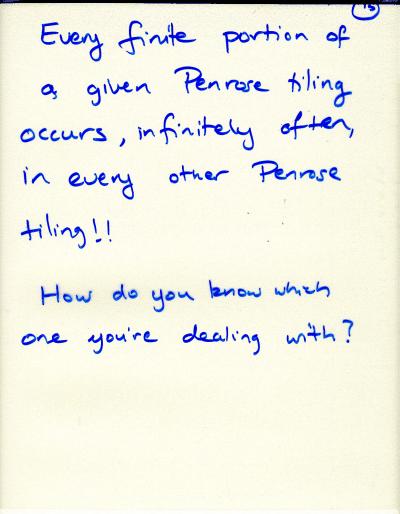 13
Every finite portion of
a given Penrose tiling
occurs, infinitely often,
in every other Penrose
tiling!!
How do you know which
one you're dealing with?